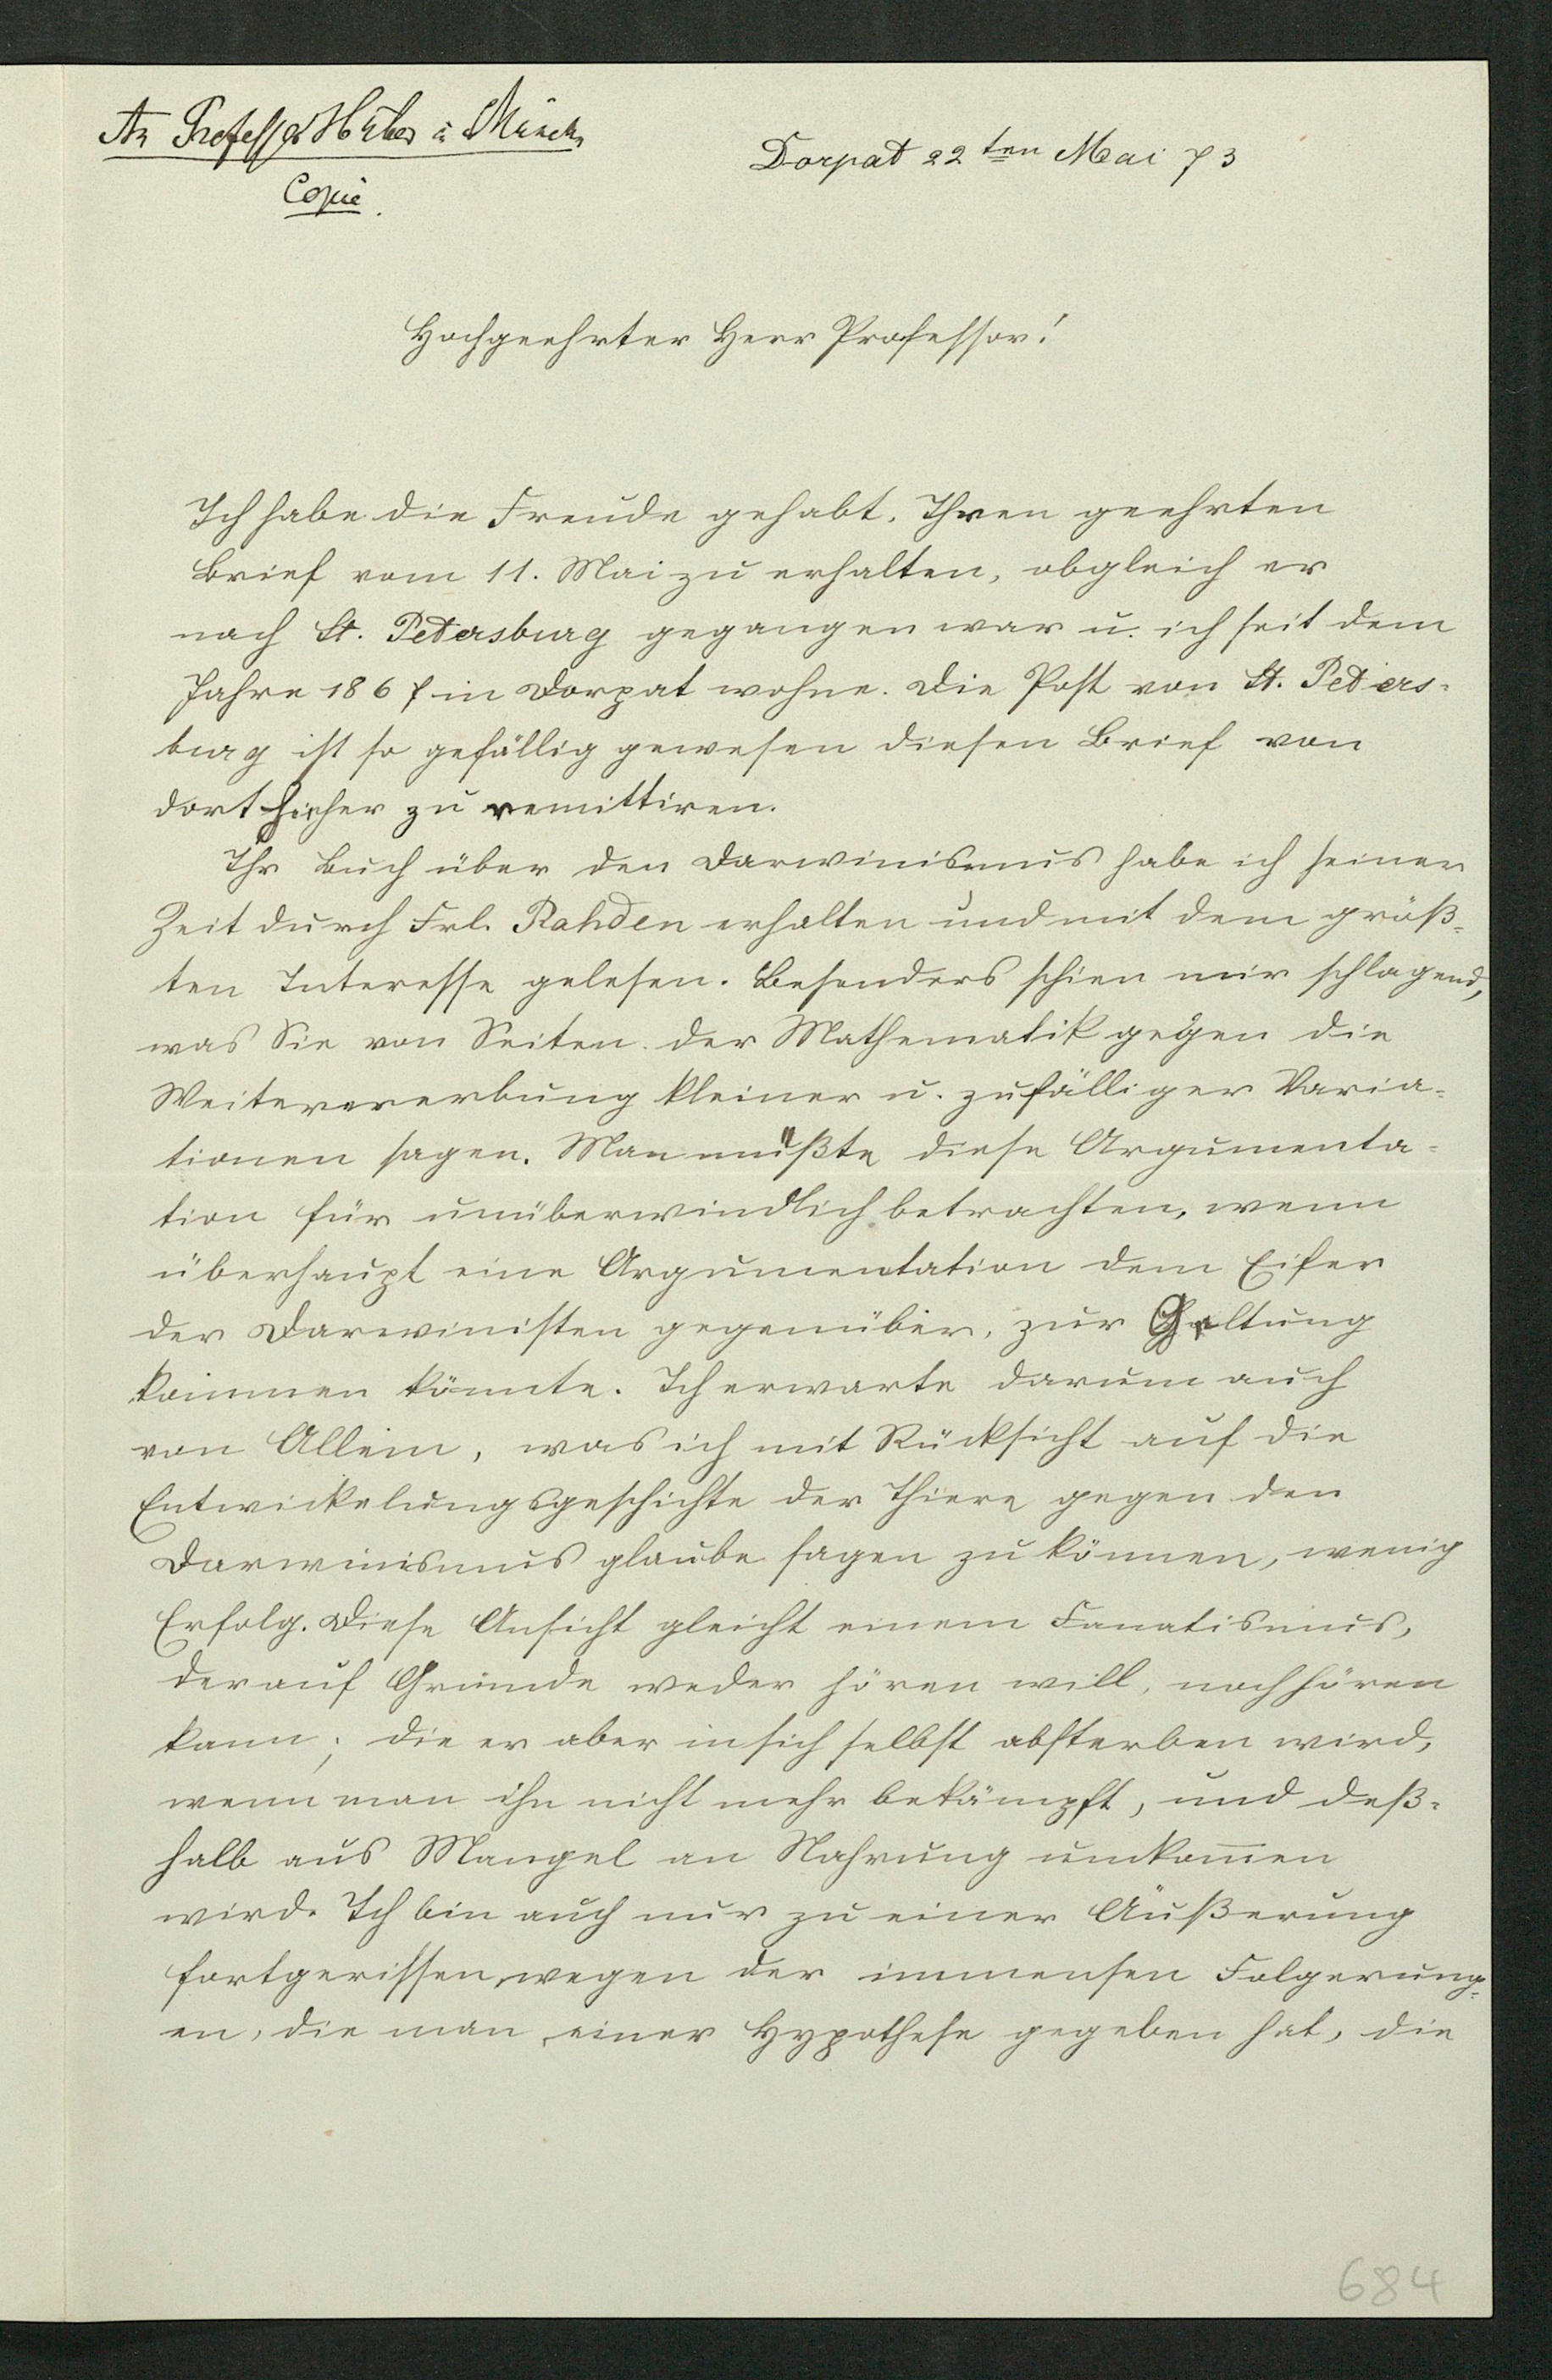 An Professor Huber in Münch
Copie.
Dorpat 22ten Mai 73
Hochgeehrter Herr Professor!
Ich habe die Freude gehabt, Ihren geehrten
Brief vom 11. Mai zu erhalten, obgleich er
nach St. Petersburg gegangen war u. ich seit dem
Jahre 1867 in Dorpat wohne. Die Post von St. Peters-
burg ist so gefällig gewesen diesen Brief von
dort hieher zu remittiren.
Ihr Buch über den Darwinismus habe ich seiner
Zeit durch Frl. Rahden erhalten und mit dem größ-
ten Interesse gelesen. Besonders schien mir schlagend,
was Sie von Seiten der Mathematik gegen die
Weitervererbung kleiner u. zufälliger Varia-
tionen sagen. Man müßte diese Argumenta-
tion für unüberwindlich betrachten, wenn
überhaupt eine Argumentation dem Eifer
der Darwinisten gegenüber, zur Geltung
kommen könnte. Ich erwarte darum auch
von Allem, was ich mit Rücksicht auf die
Entwickelungsgeschichte der Thiere gegen den
Darwinismus glaube sagen zu können, wenig
Erfolg. Diese Ansicht gleicht einem Fanatismus,
der auf Gründe weder hören will, noch hören
kann; die er aber in sich selbst absterben wird,
wenn man ihn nicht mehr bekämpft, und deß-
halb aus Mangel an Nahrung umkom̅en
wird. Ich bin auch nur zu einer Äußerung
fortgerissen, wegen der immensen Folgerung-
en, die man einer Hypothese gegeben hat, die
684